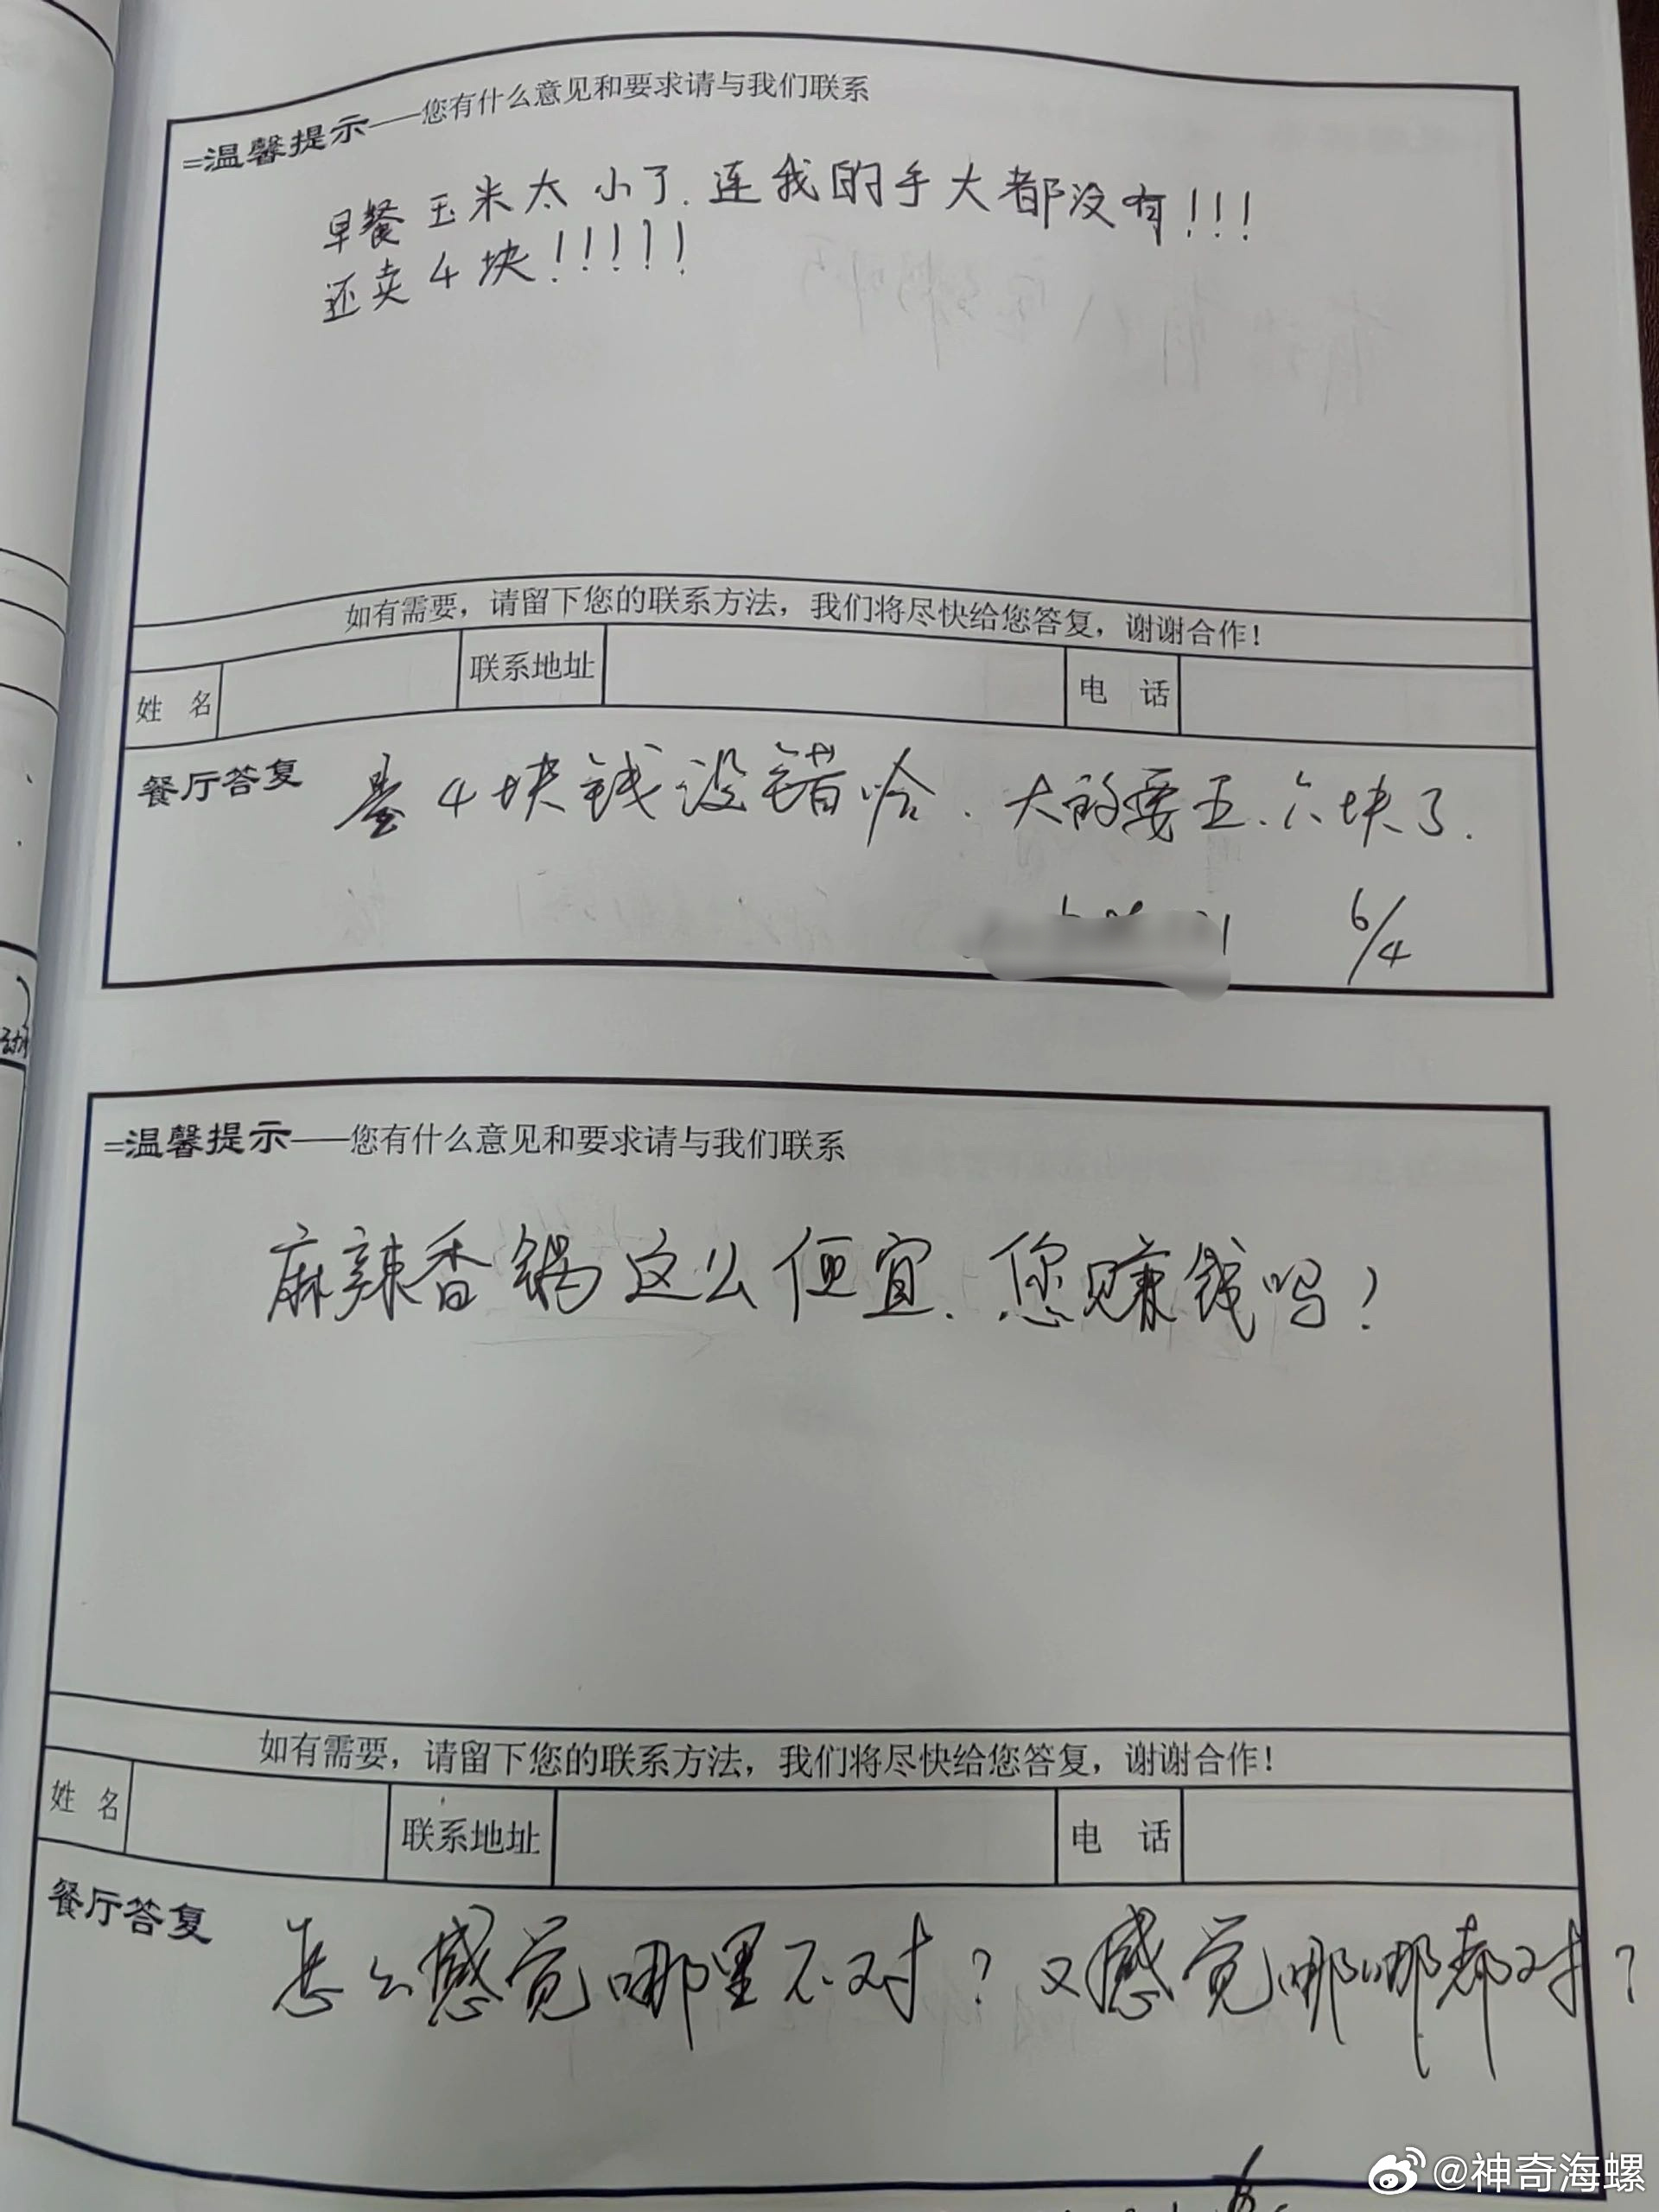 =温馨提示——您有什么意见和要求请与我们联系
早餐玉米太小了.连我的手大都没有!!!
还卖4块!!!!!
如有需要，请留下您的联系方法，我们将尽快给您答复，谢谢合作！
姓 名 联系地址 电 话
餐厅答复 4块钱没错哈.大的要五、六块了.
6/4
=温馨提示——您有什么意见和要求请与我们联系
麻辣香锅这么便宜、您赚钱吗?
如有需要，请留下您的联系方法，我们将尽快给您答复，谢谢合作！
姓 名 联系地址 电 话
餐厅答复 怎么感觉哪里不对?又感觉哪哪都对?
@神奇海螺